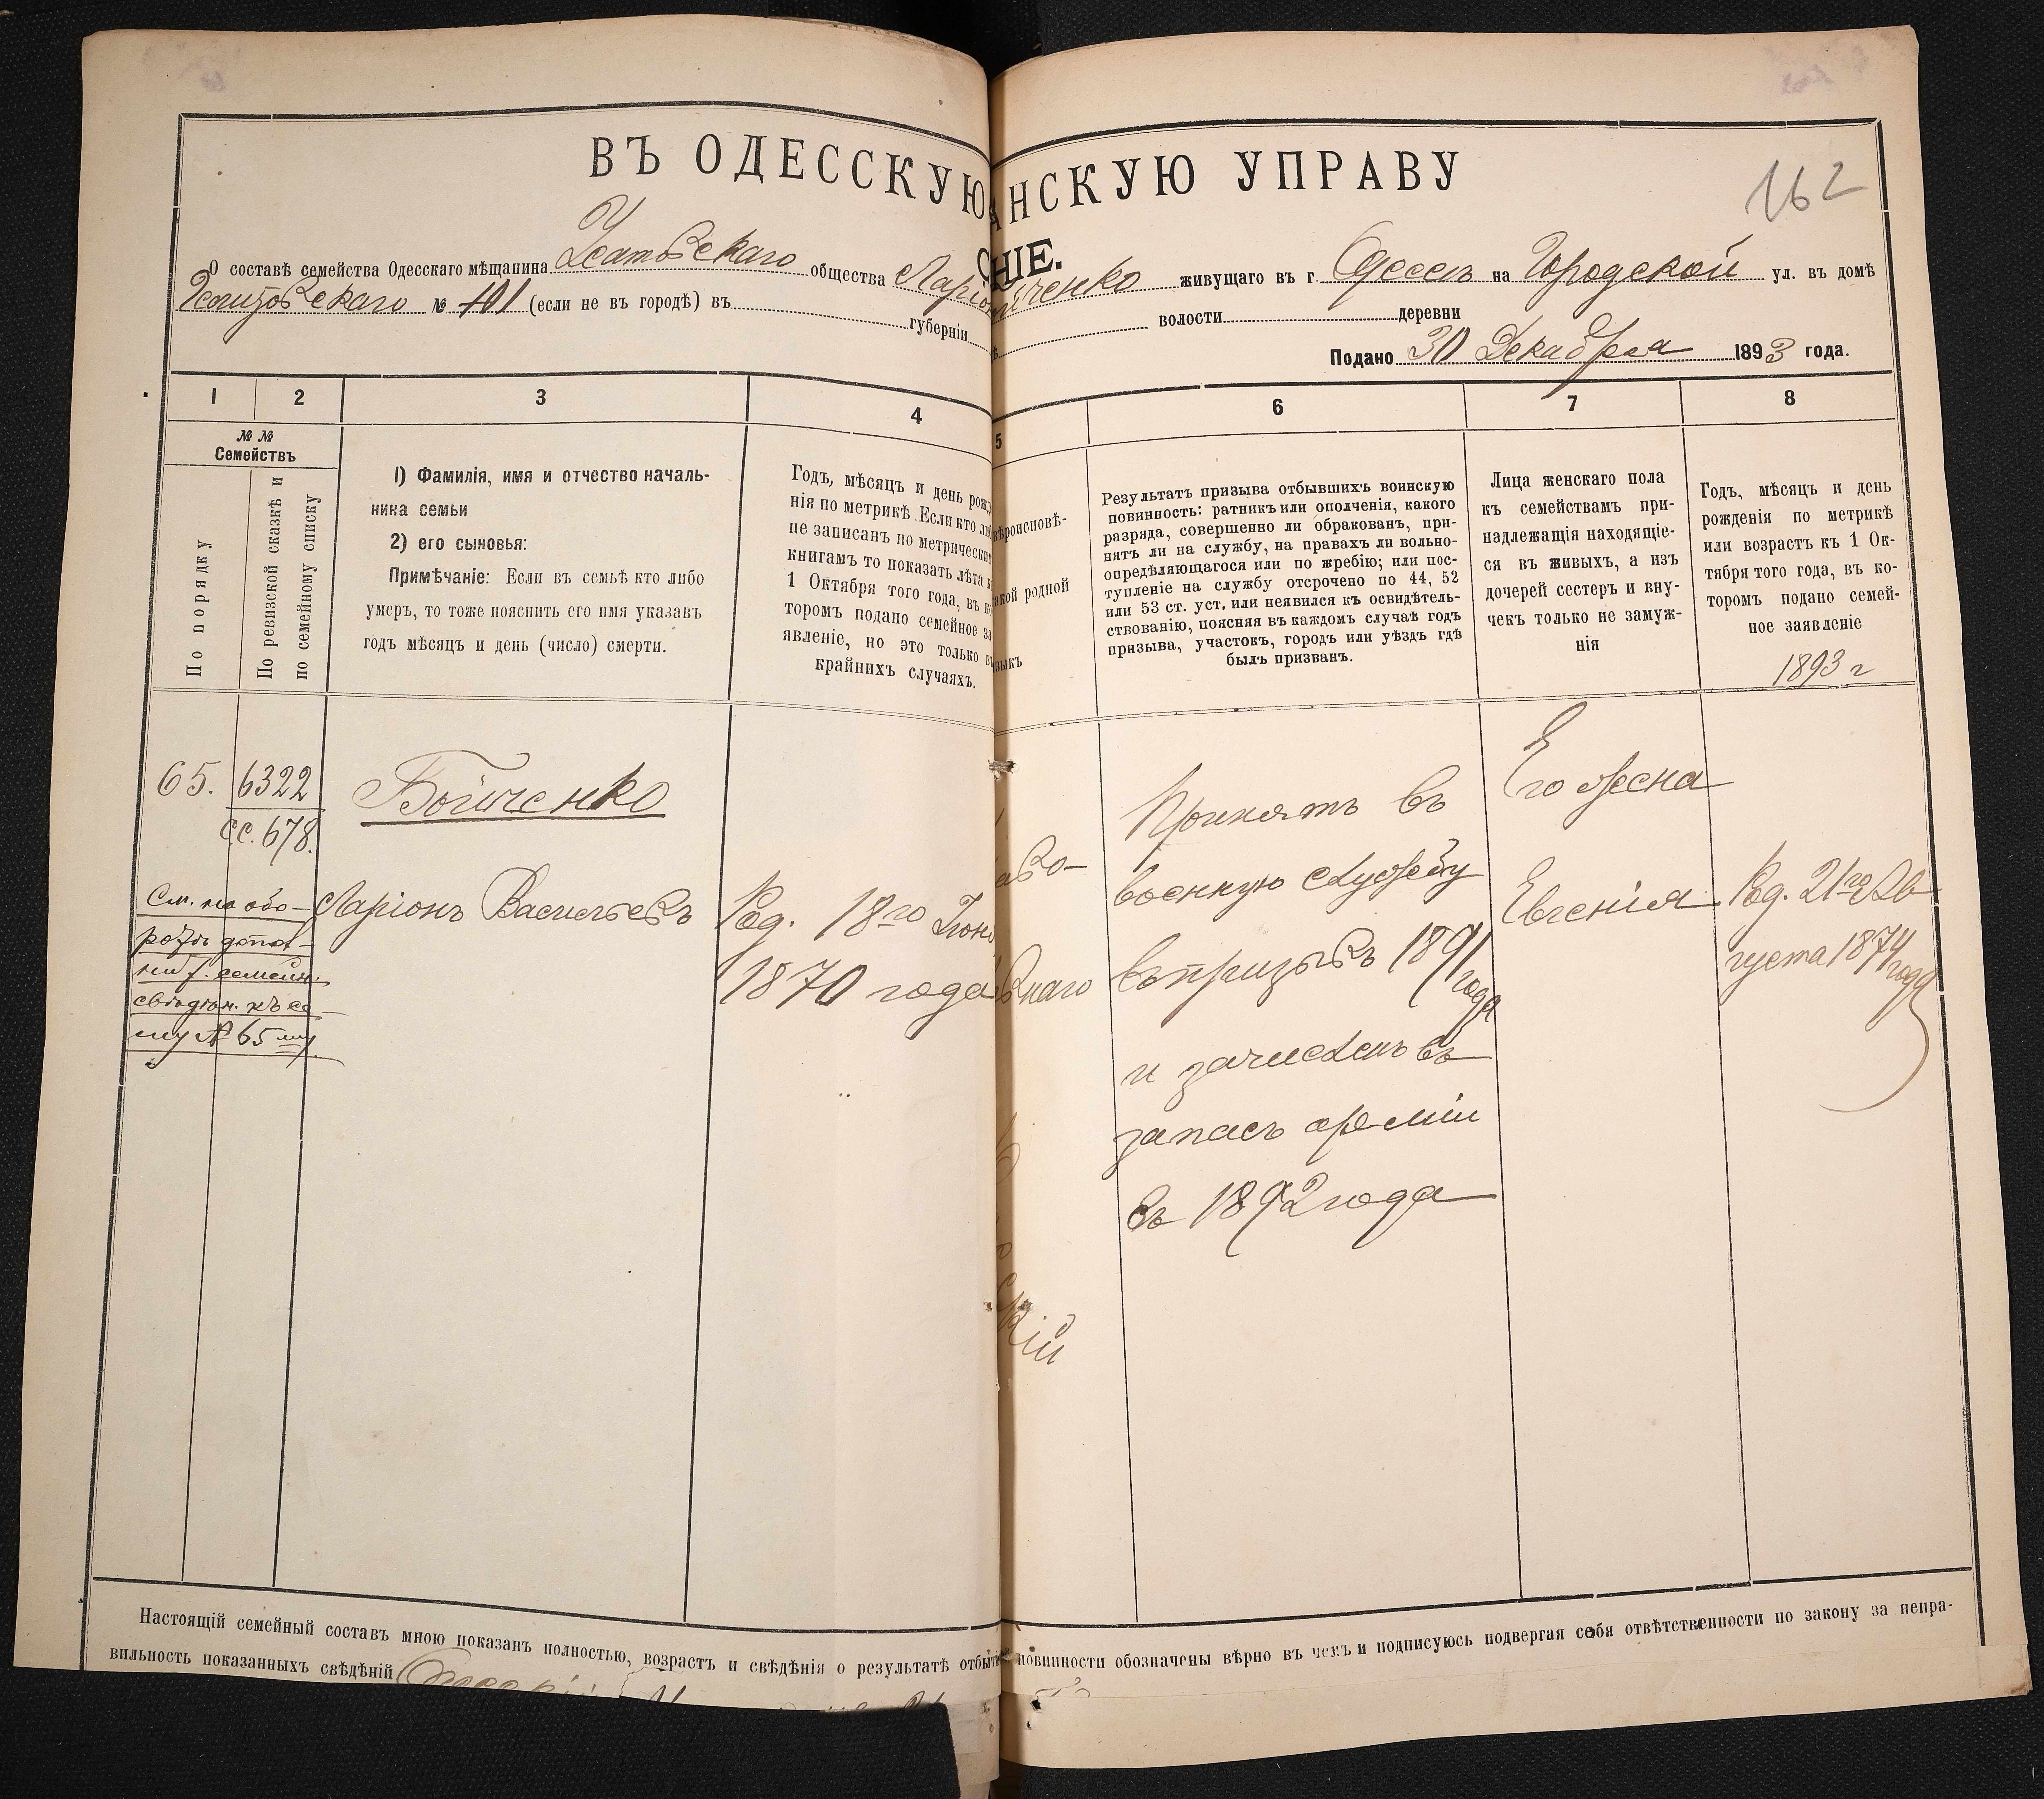 162
ВЪ ОДЕССКУЮ АНСКУЮ УПРАВУ
НІЕ.
О составѣ семейства Одесскаго мѣщанина Усатовскаго общества Ларіон ченко живущаго въ г. Одессѣ на Городской ул. въ домѣ
№ 101 (если не въ городѣ) въ губерніи волости деревни
Подано 30 Декабря 1893 года.
1 2 3 4 5 6 7 8
№ №
Семействъ
По порядку
По ревизской сказкѣ и
по семейному списку
1) Фамилія, имя и отчество началь-
ника семьи
2) его сыновья:
Примѣчаніе: Если въ семьѣ кто либо
умеръ, то тоже пояснить его имя указавъ
годъ мѣсяцъ и день (число) смерти.
Годъ, мѣсяцъ и день рожд
нія по метрикѣ. Если кто ли
не записанъ по метрическим
книгамъ то показать лѣта к
1 Октября того года, въ к
торомъ подано семейное за
явленіе, но это только в
крайнихъ случаяхъ.
вѣроисповѣ-
акой родной
зыкъ
Результатъ призыва отбывшихъ воинскую
повинность: ратникъ или ополченія, какого
разряда, совершенно ли обракованъ, при-
нятъ ли на службу, на правахъ ли вольно-
опредѣляющагося или по жребію; или пос-
тупленіе на службу отсрочено по 44, 52
или 53 ст. уст. или неявился къ освидѣтель-
ствованію, поясняя въ каждомъ случаѣ годъ
призыва, участокъ, городъ или уѣздъ гдѣ
былъ призванъ.
Лица женскаго пола
къ семействамъ при-
надлежащія находящіе-
ся въ живыхъ, а изъ
дочерей сестеръ и вну-
чекъ только не замуж-
нія
Годъ, мѣсяцъ и день
рожденія по метрикѣ
или возрастъ къ 1 Ок-
тября того года, въ ко-
торомъ подано семей-
ное заявленіе
1893 г
65.
6322
сс. 678.
См. на обо-
ротѣ допол-
семейн.
къ се-
му № 65 му.
Бойченко
Ларіонъ Васильевъ
Род. 18го Іюн
1870 года
аво-
внаго
кій
Принятъ въ
военную службу
въ призывъ 1891
года
и зачисленъ въ
запасъ арміи
въ 1892 года
Его жена
Евгенія
Род. 21го Ав-
густа 1874 года
Настоящій семейный составъ мною показанъ полностью, возрастъ и свѣдѣнія о результатѣ отбы повинности обозначены вѣрно въ чемъ и подписуюсь подвергая себя отвѣтственности по закону за непра-
вильность показанныхъ свѣдѣній